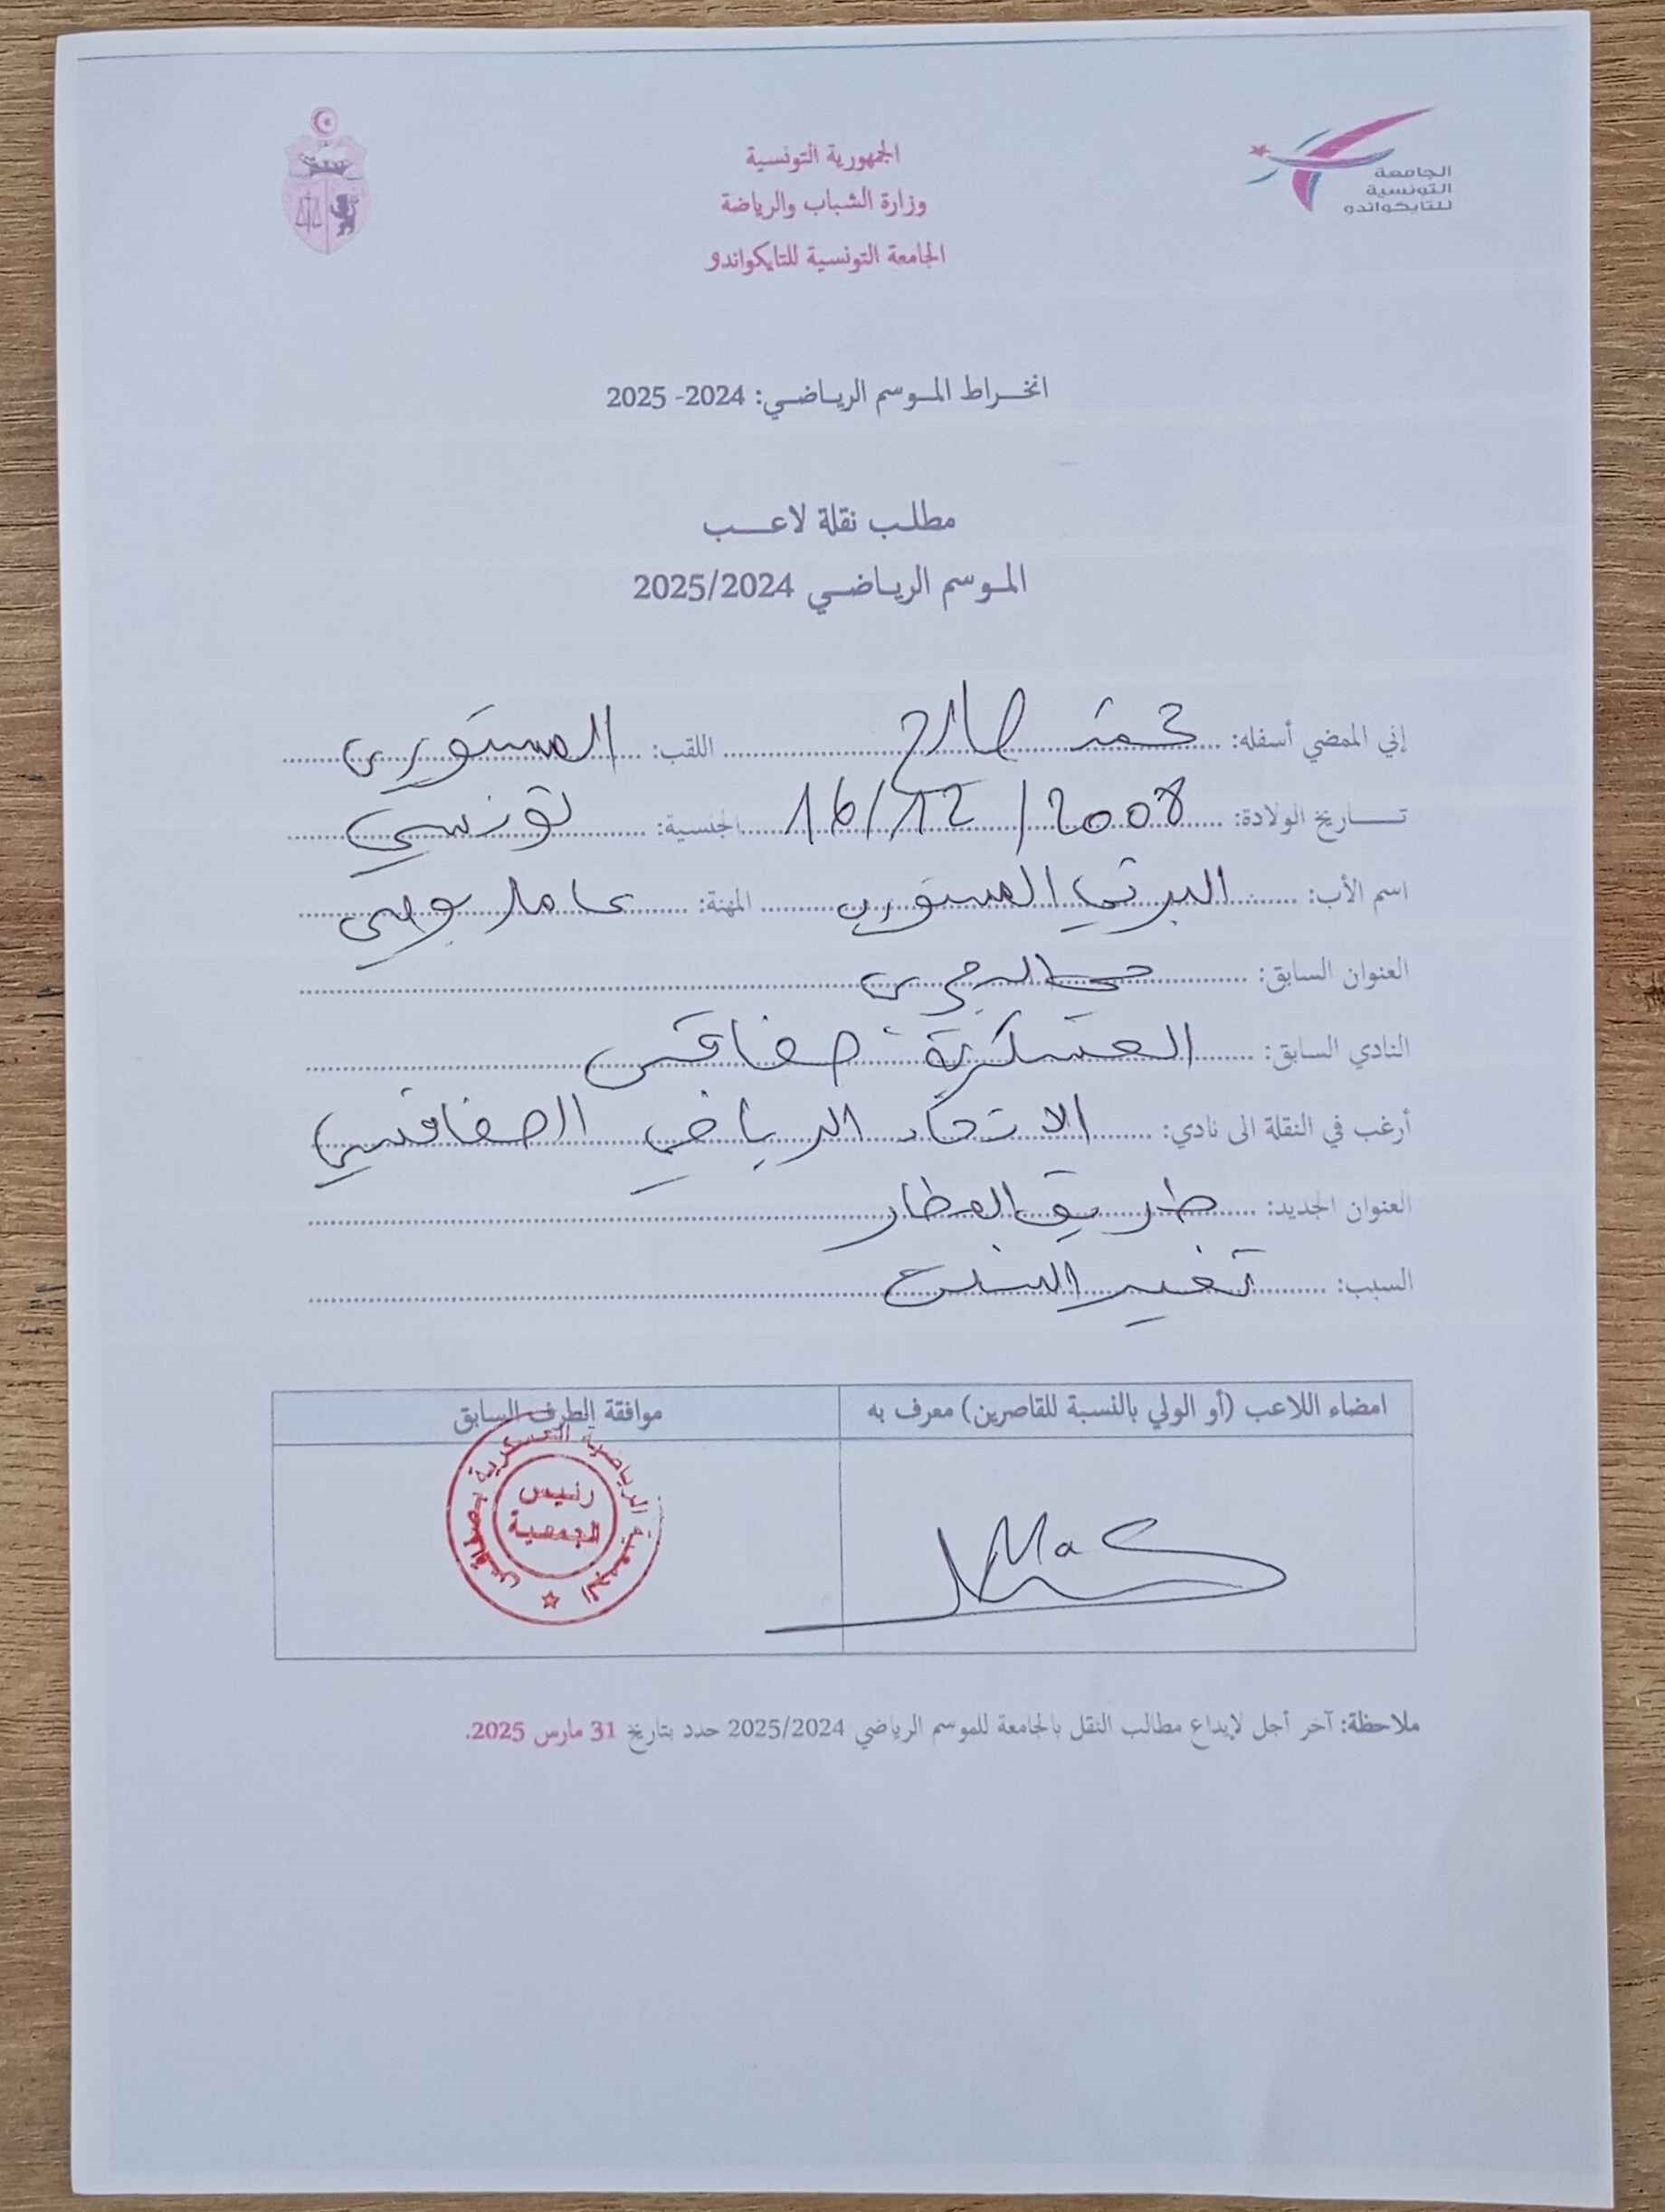 الجمهورية التونسية
وزارة الشباب والرياضة
الجامعة التونسية للتايكواندو
الجامعة
التونسية
للتايكواندو
انخراط الموسم الرياضي: 2024- 2025
مطلب نقلة لاعب
الموسم الرياضي 2025/2024
إني الممضي أسفله: محمد صالح اللقب: المستوري
تاريخ الولادة: 16/12/2008 الجنسية: تونسي
اسم الأب: البرني المستوري المهنة: عامل يومي
العنوان السابق:
النادي السابق: العسكرية صفاقس
أرغب في النقلة الى نادي: الاتحاد الرياضي الصفاقسي
العنوان الجديد: طريق المطار
السبب: تغيير
امضاء اللاعب (أو الولي بالنسبة للقاصرين) معرف به
موافقة الطرف السابق
الجمعية الرياضية العسكرية بصفاقس
رئيس
الجمعية
ملاحظة: آخر أجل لإيداع مطالب النقل بالجامعة للموسم الرياضي 2025/2024 حدد بتاريخ 31 مارس 2025.